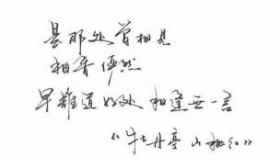 是那处曾相见
相看俨然
早难道好处 相逢无一言
《牡丹亭 山桃红》